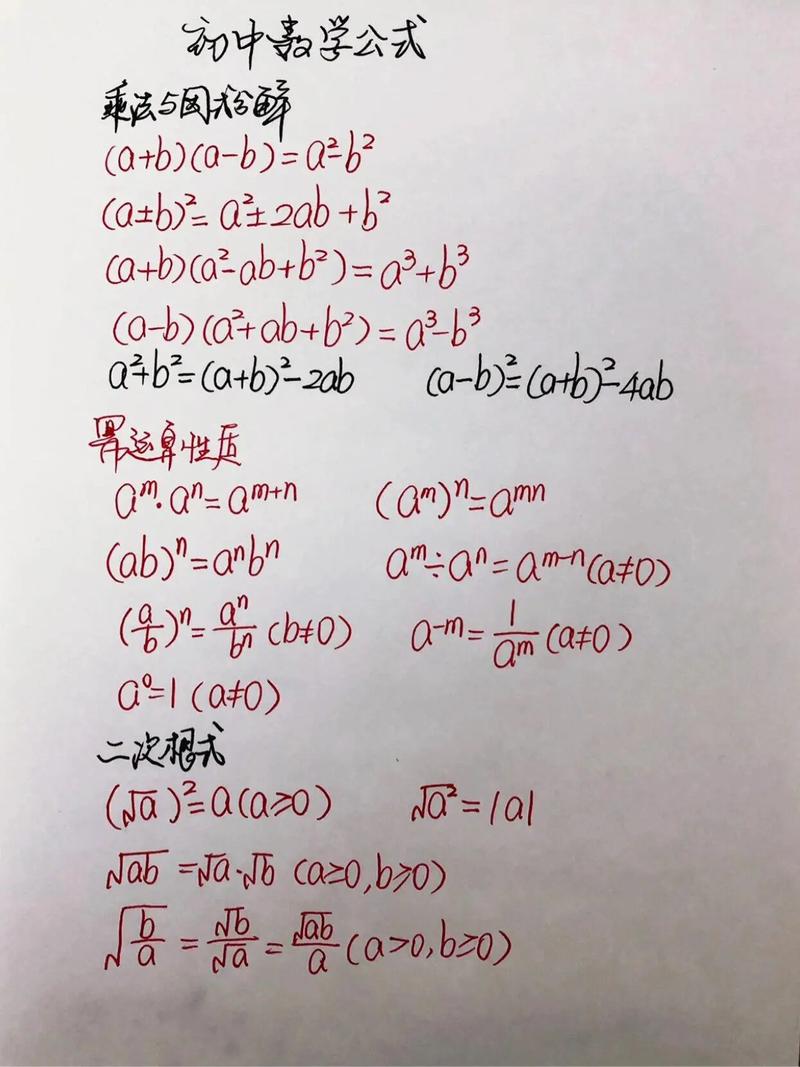 初中数学公式
乘法与因式分解
(a+b)(a-b)=a²-b²
(a±b)²=a²±2ab+b²
(a+b)(a²-ab+b²)=a³+b³
(a-b)(a²+ab+b²)=a³-b³
a²+b²=(a+b)²-2ab (a-b)²=(a+b)²-4ab
幂运算性质
aᵐ·aⁿ=aᵐ⁺ⁿ (aᵐ)ⁿ=aᵐⁿ
(ab)ⁿ=aⁿbⁿ aᵐ÷aⁿ=aᵐ⁻ⁿ(a≠0)
(a/b)ⁿ=aⁿ/bⁿ(b≠0) a⁻ᵐ=1/aᵐ(a≠0)
a⁰=1(a≠0)
二次根式
(√a)²=a(a≥0) √a²=|a|
√ab=√a·√b(a≥0,b≥0)
√(b/a)=√b/√a=√ab/a(a>0,b≥0)